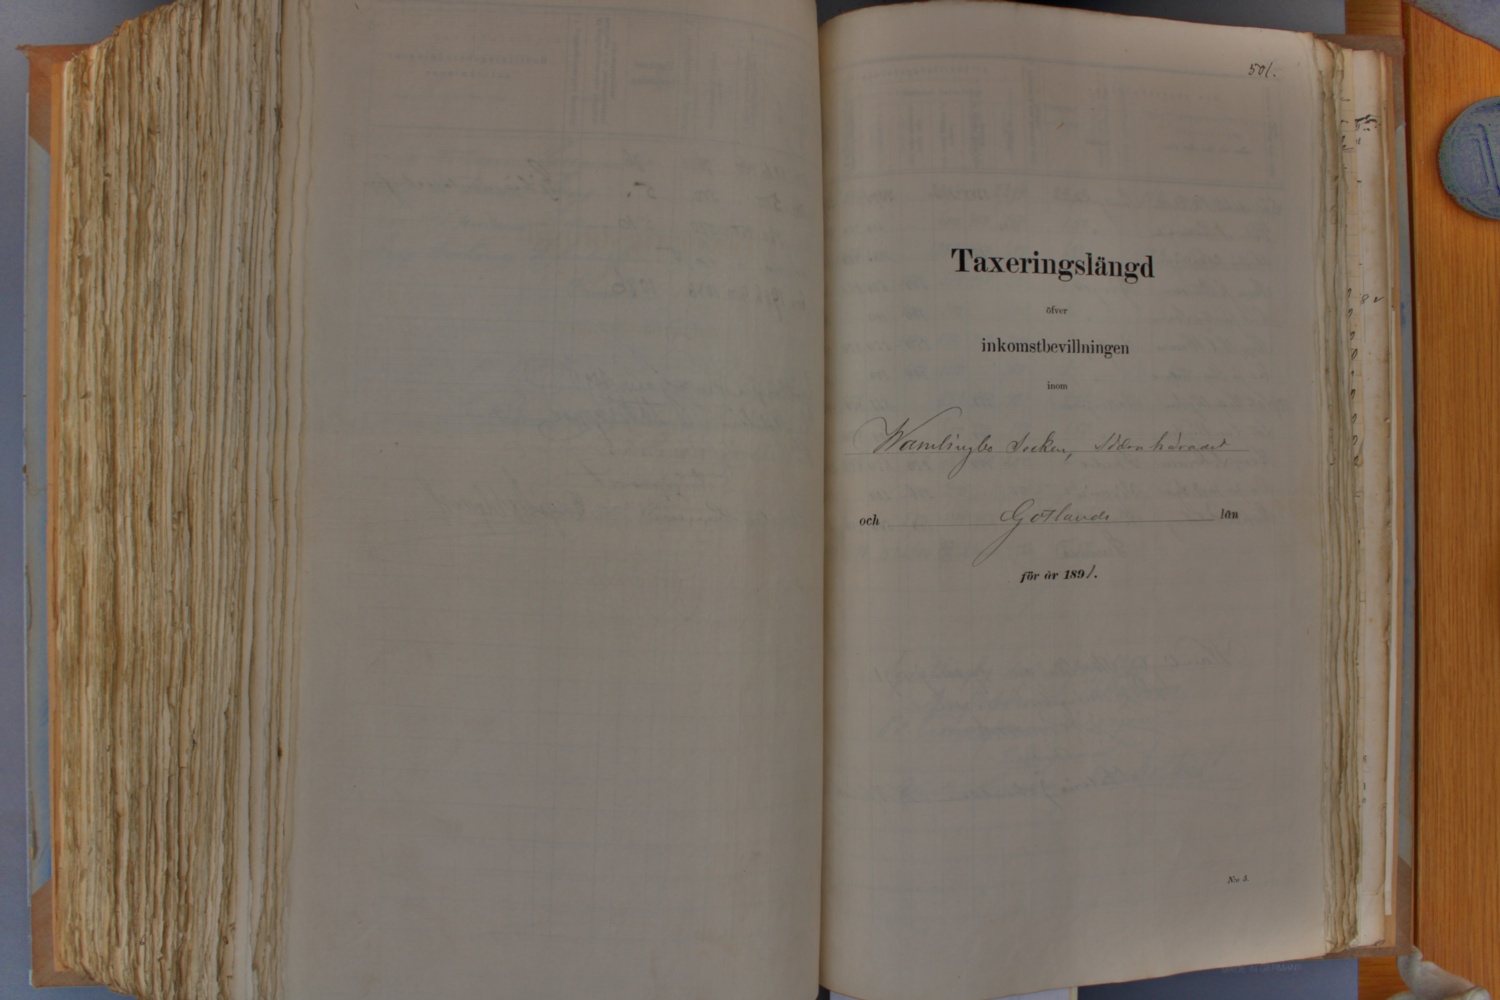 501.
Taxeringslängd
öfver
inkomstbevillningen
inom
Wamlingbo Socken, Södra häradet
och Gotlands län
för år 1891.
N:o 3.